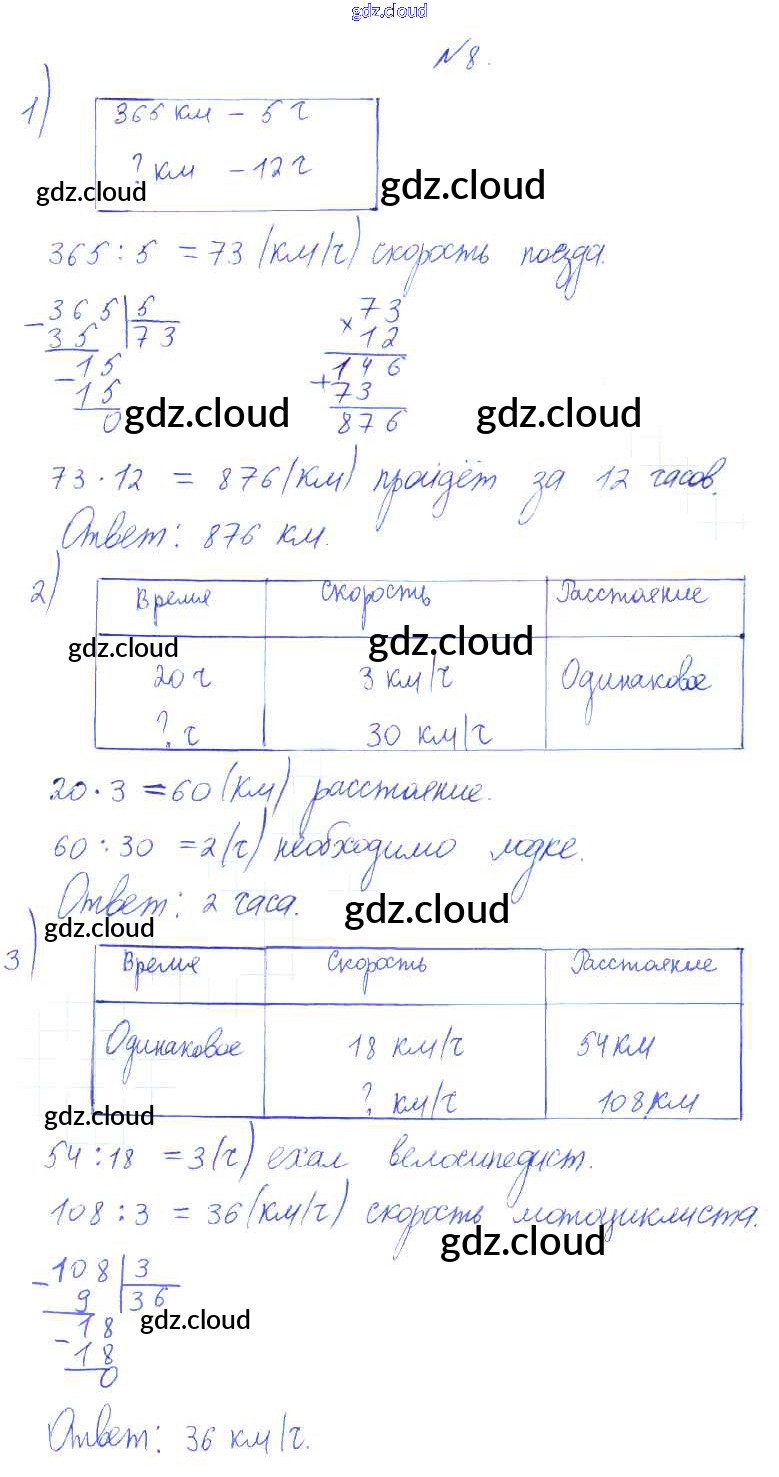 gdz.cloud
№8.
1)
365 км – 5 ч
? км – 12 ч
gdz.cloud
gdz.cloud
365 : 5 = 73 (км/ч) скорость поезда.
– 365 | 5
35 73
– 15
15
0
73
× 12
146
+ 73
876
gdz.cloud
gdz.cloud
73 · 12 = 876 (км) пройдёт за 12 часов.
Ответ: 876 км.
2)
Время Скорость Расстояние
gdz.cloud
gdz.cloud
20 ч 3 км/ч Одинаковое
? ч 30 км/ч
20 · 3 = 60 (км) расстояние.
60 : 30 = 2 (ч) необходимо лодке.
Ответ: 2 часа.
gdz.cloud
gdz.cloud
3)
Время Скорость Расстояние
Одинаковое 18 км/ч 54 км
? км/ч 108 км
gdz.cloud
54 : 18 = 3 (ч) ехал велосипедист.
108 : 3 = 36 (км/ч) скорость мотоциклиста.
gdz.cloud
– 108 | 3
9 36
– 18
18
0
gdz.cloud
Ответ: 36 км/ч.